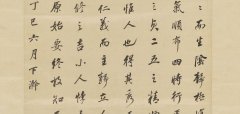 而生陰靜極復
氣順布四時行焉
之真二五之精
惟人也得其秀
仁義而主靜立人
之吉小人悖
原始要終故知
丁巳六月下澣